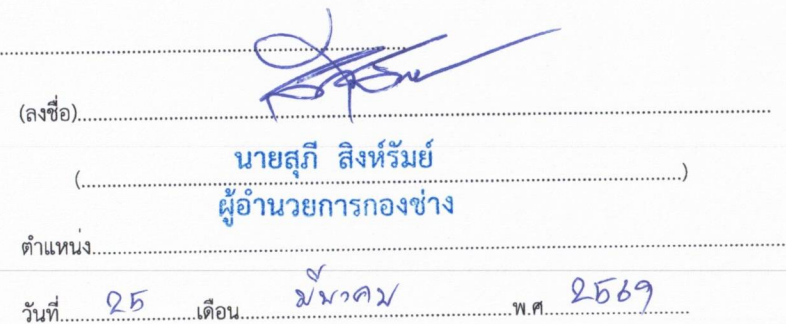 (ลงชื่อ)
(นายสุภี สิงห์รัมย์)
ผู้อำนวยการกองช่าง
ตำแหน่ง
วันที่ 25 เดือน มีนาคม พ.ศ 2569